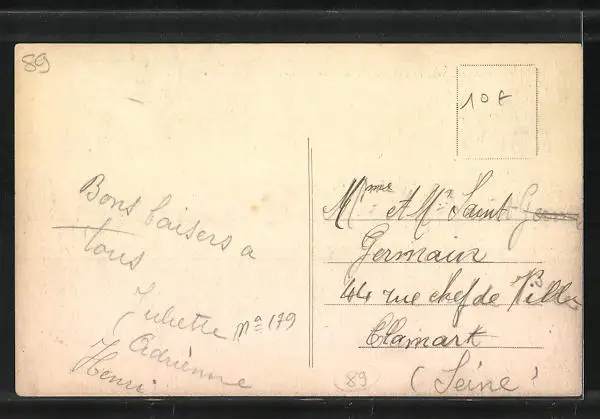 89
10 f
Bons baisers a
tous
Juliette
Adrienne
Henri
Na 179
Mmes et Mr Saint
Germain
44 rue chef de Ville
Clamart
(Seine)
89